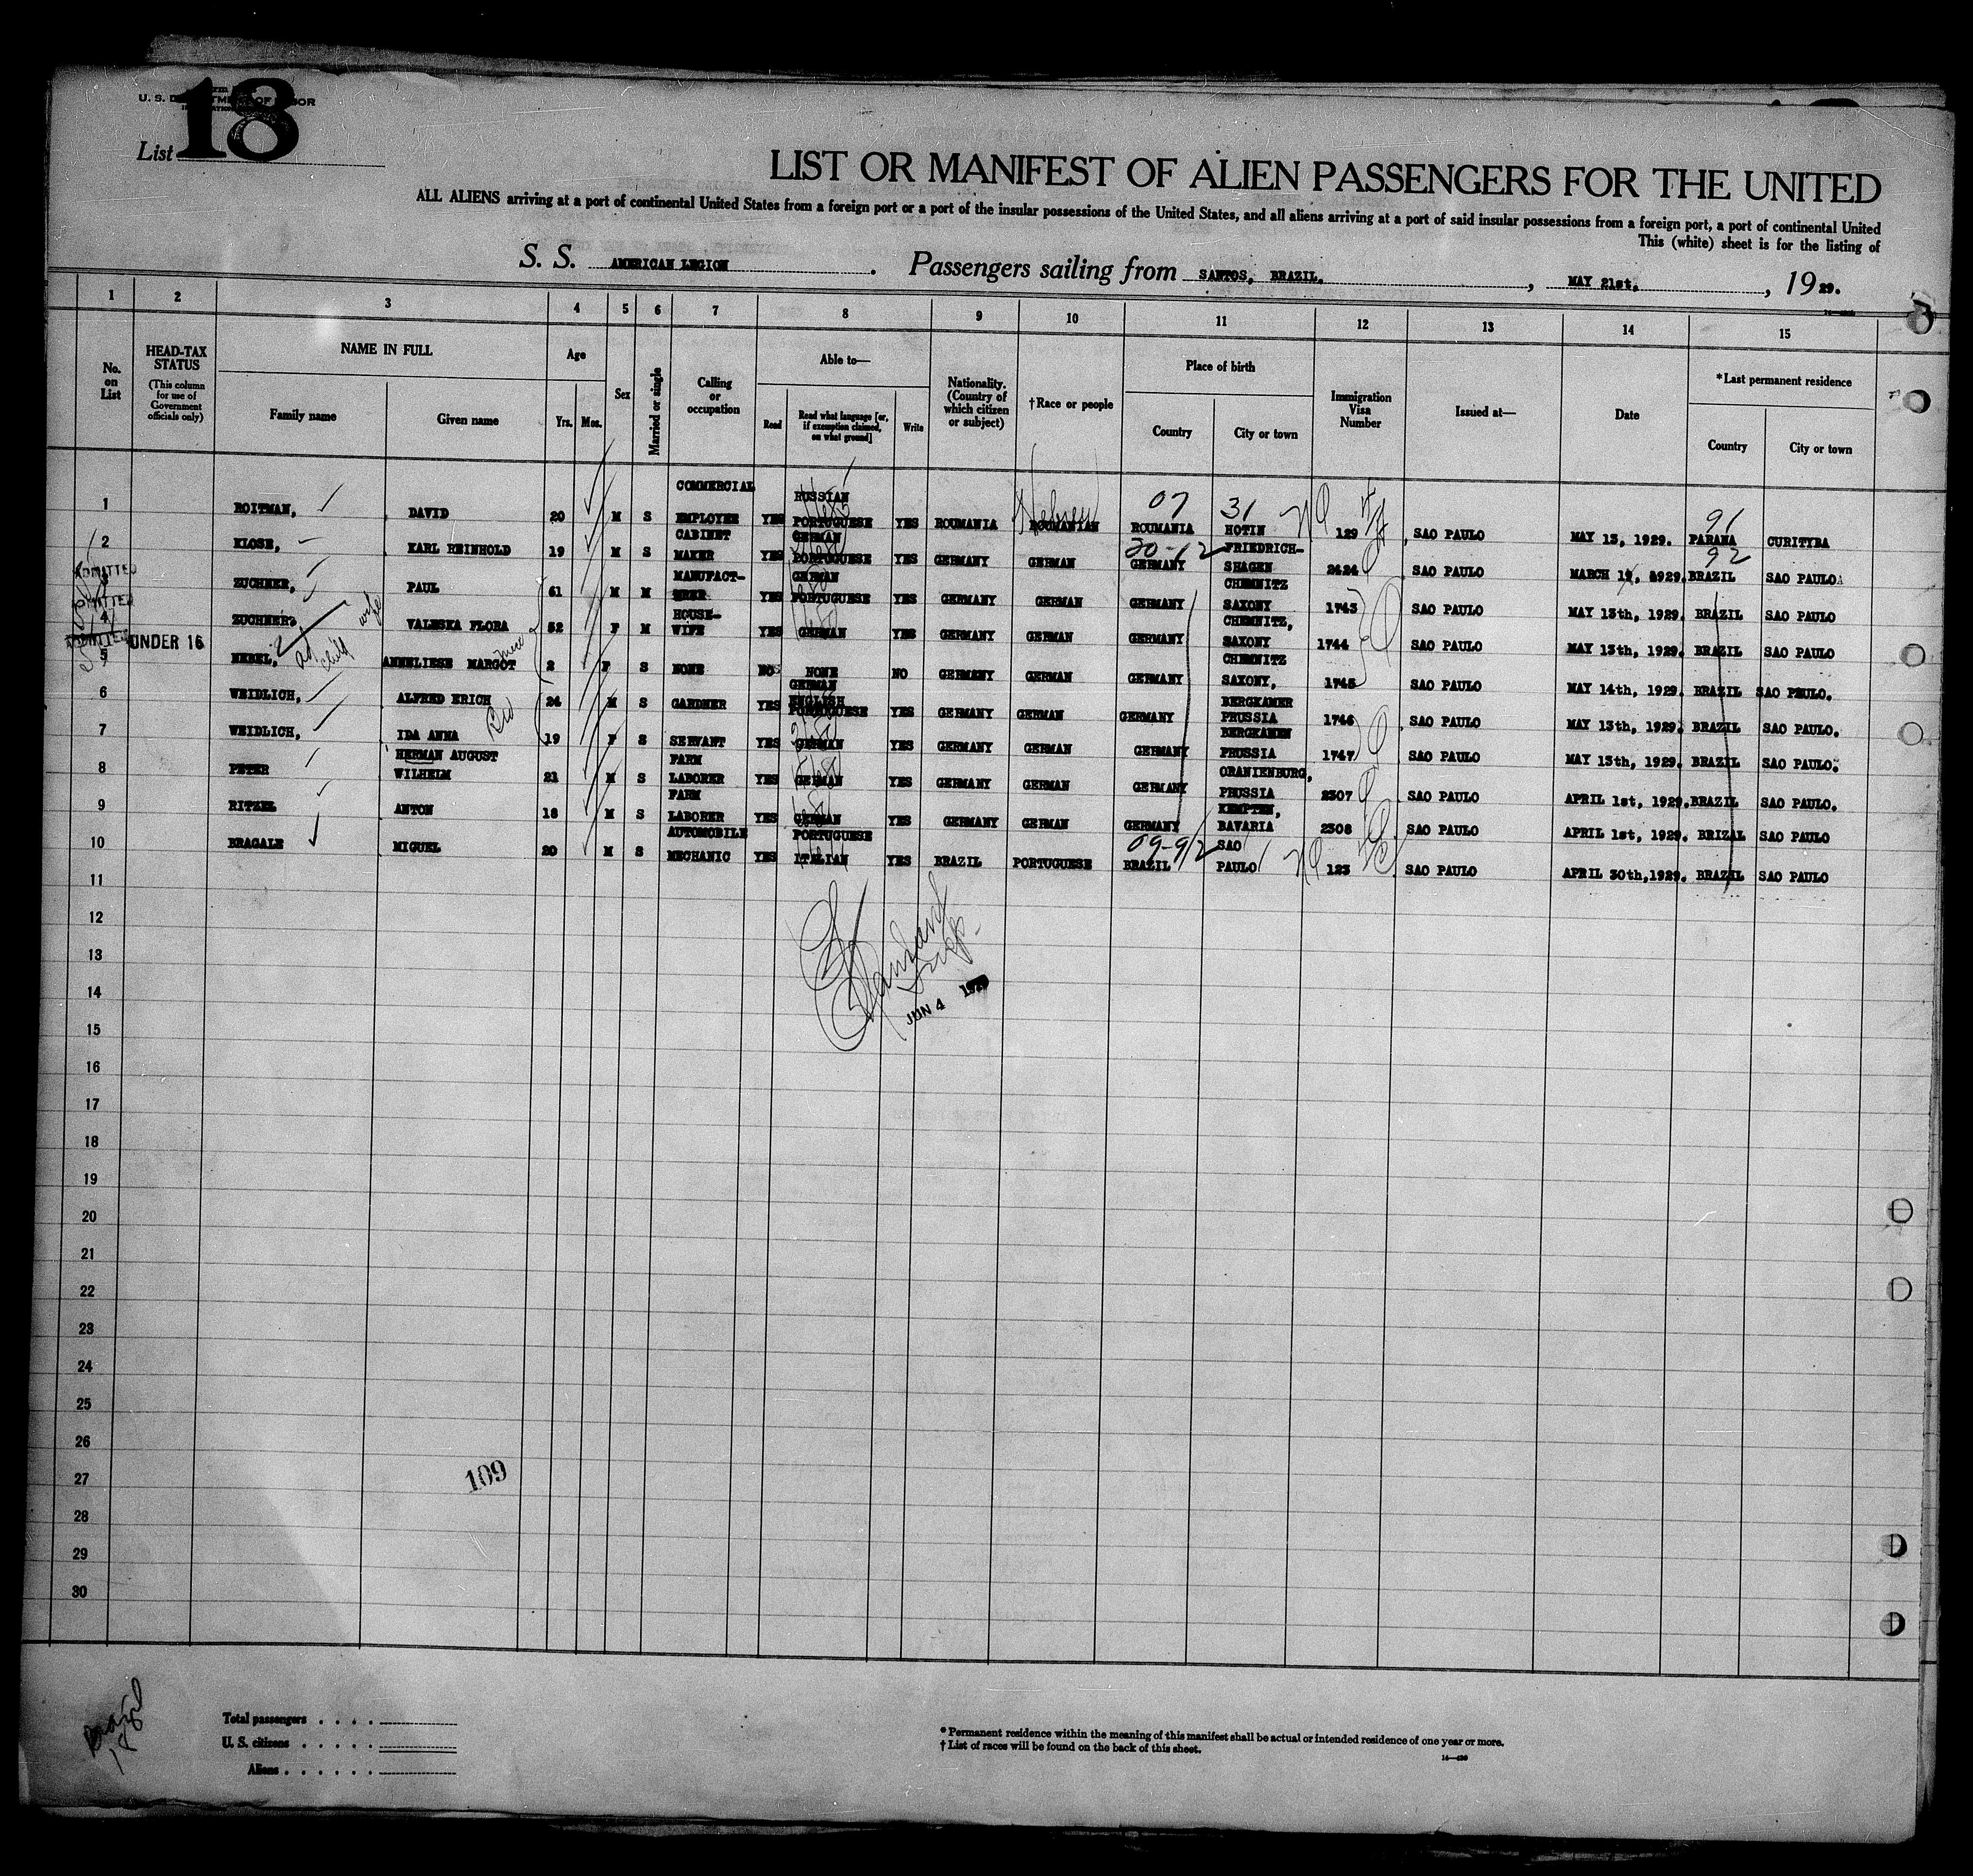 U. S. DEPARTMENT OF LABOR
List 18
LIST OR MANIFEST OF ALIEN PASSENGERS FOR THE UNITED
ALL ALIENS arriving at a port of continental United States from a foreign port or a port of the insular possessions of the United States, and all aliens arriving at a port of said insular possessions from a foreign port, a port of continental United
This (white) sheet is for the listing of
S. S. AMERICAN LEGION. Passengers sailing from SANTOS, BRAZIL. , MAY 21st. , 1929.
1 2 3 4 5 6 7 8 9 10 11 12 13 14 15
No. on List
HEAD-TAX STATUS
(This column for use of Government officials only)
NAME IN FULL
Family name
Given name
Age
Yrs. Mos.
Sex
Married or single
Calling or occupation
Able to—
Read
Read what language [or, if exemption claimed, on what ground]
Write
Nationality. (Country of which citizen or subject)
†Race or people
Place of birth
Country
City or town
Immigration Visa Number
Issued at—
Date
*Last permanent residence
Country
City or town
1 ROITMAN, DAVID 20 M S COMMERCIAL EMPLOYEE YES RUSSIAN PORTUGUESE YES ROUMANIA ROUMANIAN Hebrew 07 31 ROUMANIA HOTIN 129 SAO PAULO MAY 13, 1929. 91 PARANA CURITYBA
2 KLOSE, KARL REINHOLD 19 M S CABINET MAKER YES GERMAN PORTUGUESE YES GERMANY GERMAN 30-12 GERMANY FRIEDRICH-SHAGEN 2424 SAO PAULO MARCH 1 , 1929. 92 BRAZIL SAO PAULO
ADMITTED
3 ZUCHNER, PAUL 61 M M MANUFACT-URER YES GERMAN PORTUGUESE YES GERMANY GERMAN GERMANY CHEMNITZ SAXONY 1743 SAO PAULO MAY 13th, 1929. BRAZIL SAO PAULO
ADMITTED
4 ZUCHNER, wife VALESKA FLORA 52 F M HOUSE-WIFE YES GERMAN YES GERMANY GERMAN GERMANY CHEMNITZ, SAXONY 1744 SAO PAULO MAY 13th, 1929. BRAZIL SAO PAULO
ADMITTED
5 UNDER 16 NEBEL, child ANNELIESE MARGOT niece 2 F S NONE NO NONE NO GERMANY GERMAN GERMANY CHEMNITZ SAXONY, 1745 SAO PAULO MAY 14th, 1929. BRAZIL SAO PAULO.
6 WEIDLICH, ALFRED ERICH 24 M S GARDNER YES GERMAN ENGLISH PORTUGUESE YES GERMANY GERMAN GERMANY BERGKAMER PRUSSIA 1746 SAO PAULO MAY 13th, 1929. BRAZIL SAO PAULO.
7 WEIDLICH, IDA ANNA 19 F S SERVANT YES GERMAN YES GERMANY GERMAN GERMANY BERGKAMEN PRUSSIA 1747 SAO PAULO MAY 13th, 1929. BRAZIL SAO PAULO.
8 PETER HERMAN AUGUST WILHELM 21 M S FARM LABORER YES GERMAN YES GERMANY GERMAN GERMANY ORANIENBURG, PRUSSIA 2307 SAO PAULO APRIL 1st, 1929. BRAZIL SAO PAULO.
9 RITZEL ANTON 18 M S FARM LABORER YES GERMAN YES GERMANY GERMAN GERMANY KEMPTEN, BAVARIA 2308 SAO PAULO APRIL 1st, 1929. BRIZAL SAO PAULO
10 BRAGALE MIGUEL 20 M S AUTOMOBILE MECHANIC YES PORTUGUESE ITALIAN YES BRAZIL PORTUGUESE 09-92 BRAZIL SAO PAULO 123 SAO PAULO APRIL 30th, 1929. BRAZIL SAO PAULO
11
12
13
14
JUN 4 1929
15
16
17
18
19
20
21
22
23
24
25
26
27
109
28
29
30
Brazil
Total passengers . . . .
U. S. citizens . . . . .
Aliens . . . . . .
* Permanent residence within the meaning of this manifest shall be actual or intended residence of one year or more.
† List of races will be found on the back of this sheet.
14—430